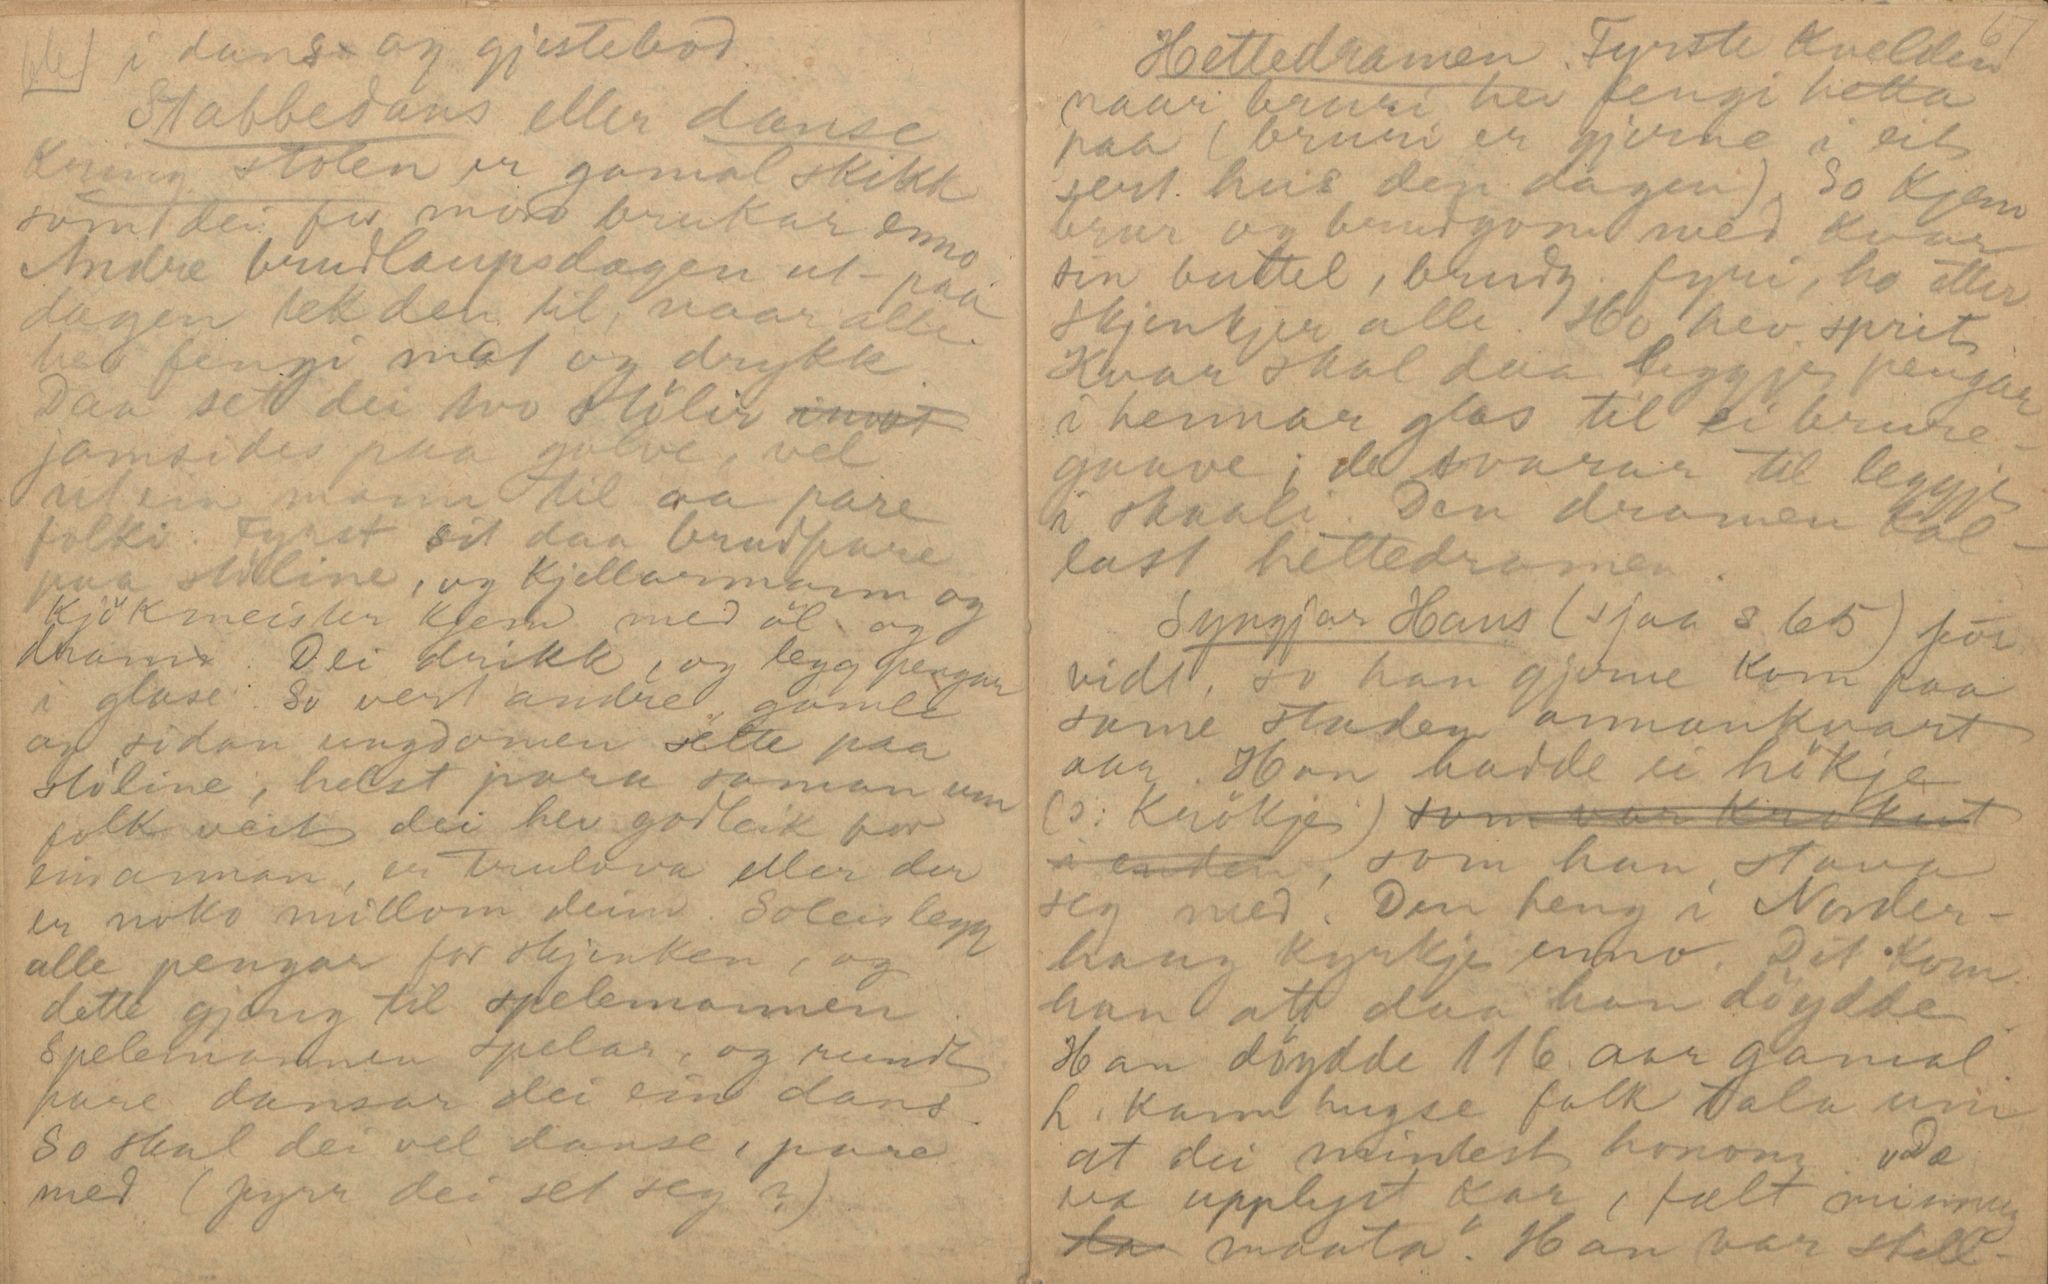 66
i dans og gjestebod.
Stabbedans eller danse
kring stolen er gamal skikk
som dei for moro brukar enno
Andre brudlaupsdagen ut-paa
dagen tek den til, naar alle
hev fengi mat og drykk.
Daa set dei tvo stölir innat
jamsides paa golve, vel
ut ein mann til aa pare
folki. Fyrst sit daa brudpare
paa stöline, og kjellarmann og
kjökmeister kjem med öl og
dram. Dei drikk, og legg pengar
i glase. So vert andre, gamle
og sidan ungdomen sette paa
stöline, helst para saman um
folk veit dei hev godleik for
einannan, er trulova eller der
er noko millom deim. Soleis legg
alle pengar for skjenken, og
dette gjeng til spelemannen.
Spelemannen spelar, og rundt
pare dansar dei ein dans.
So skal dei vel danse, pare
med (fyrr dei set seg?)
67
Hettedramen. Fyrste kvelden
naar bruri hev fengi hetta
paa (bruri er gjerne i eit
sert hus den dagen). So kjem
brur og brudgom med kvar
sin buttel, brudg. fyri, ho etter
skjenkjer alle. Ho hev sprit.
Kvar skal daa leggje pengar
i hennar glas til ei brure-
gaave; de svarar til leggje
i skaali. Den dramen kal-
last hettedramen.
Syngjar Hans (sjaa s 65) för
vidt, so han gjerne kom paa
same staden annankvart
aar. Han hadde ei hökje
(ɔ: krökje) som var krokut
i enden, som han stava
seg med. Den heng i Norder-
haug kyrkje enno. Dit kom
han att daa han döydde.
Han döydde 116 aar gamal.
h. kann hugse folk tala um
at dei mintest honom. "De
va upplyst kar, fælt minnug
da maata". Han var still-